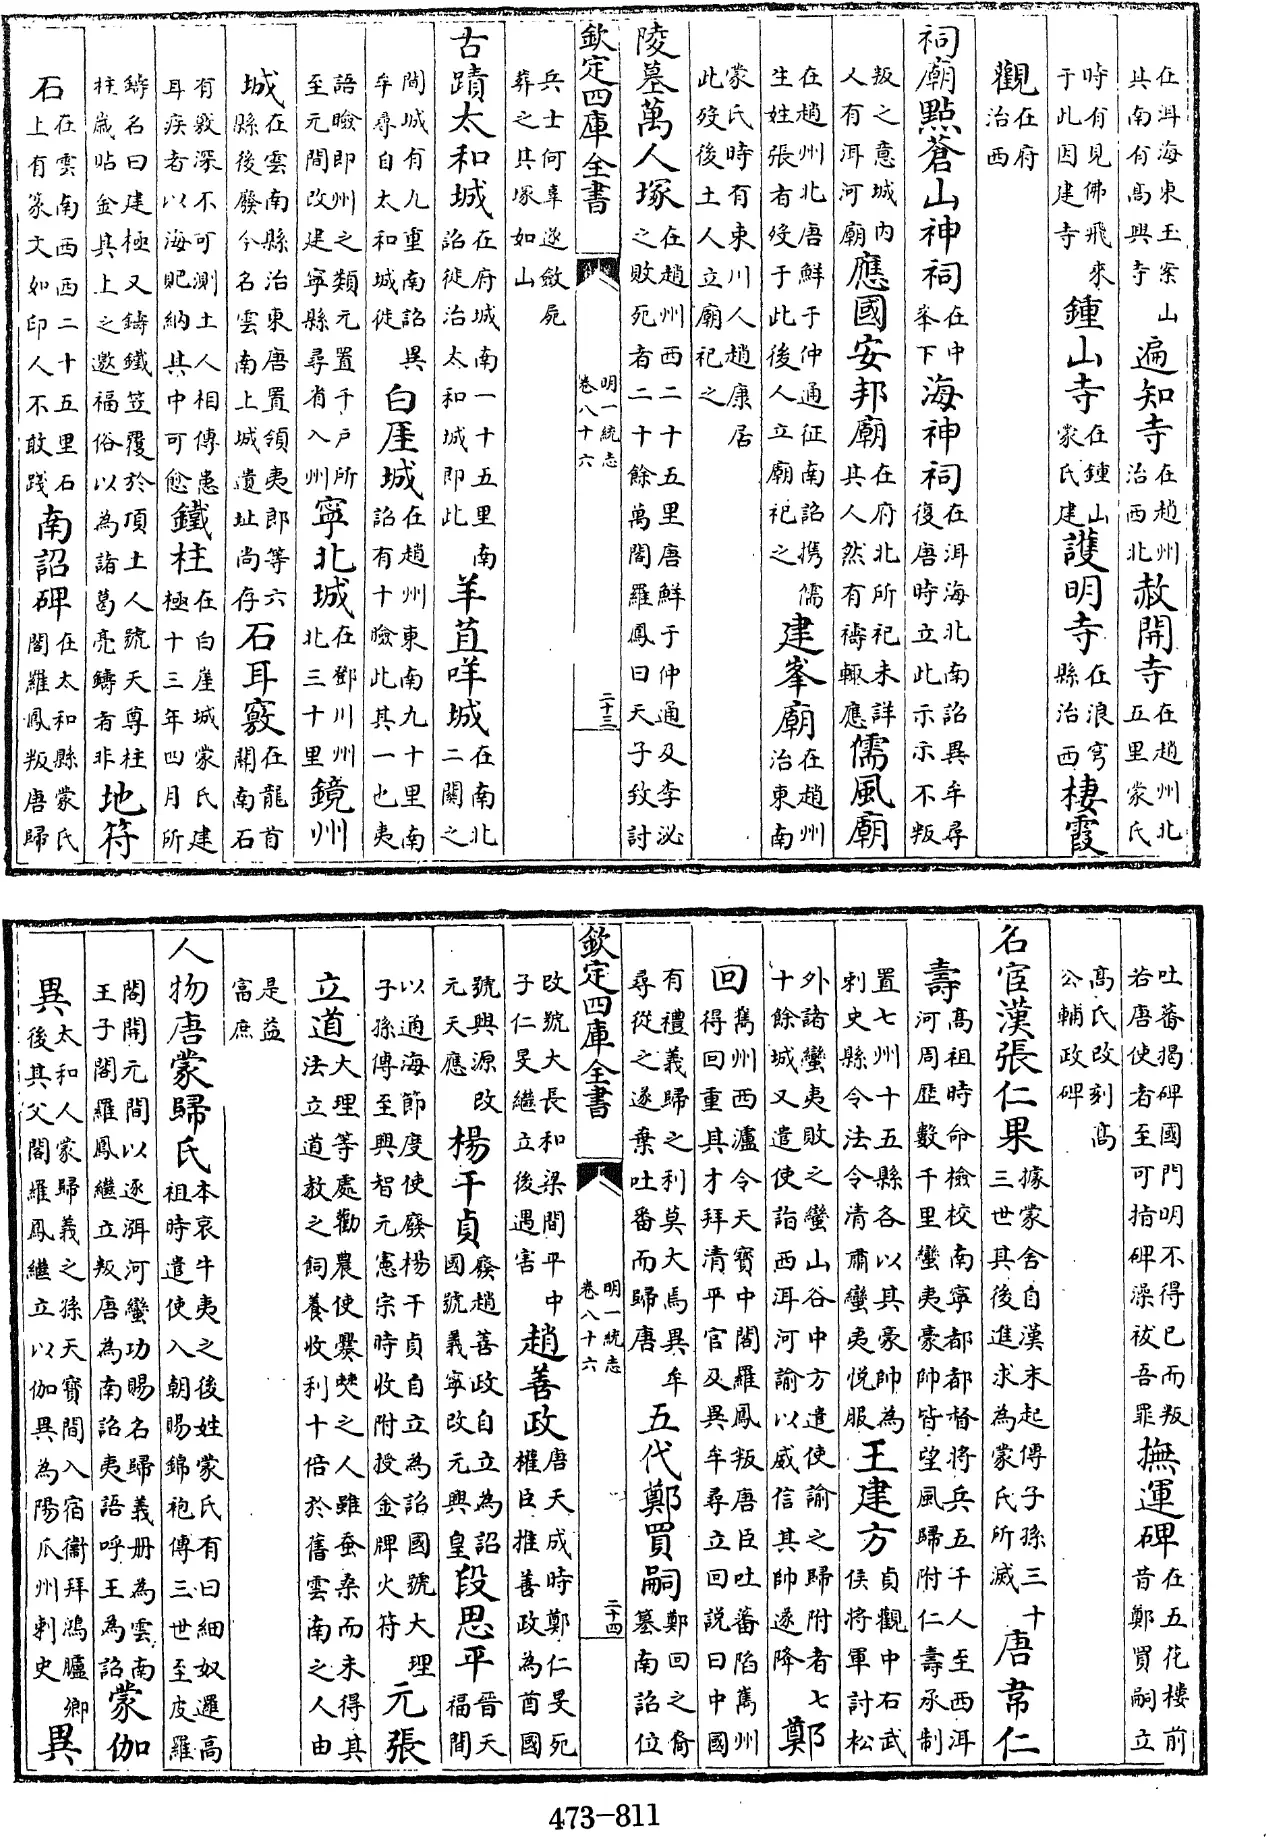 在洱海東玉案山其南有高興寺遍知寺在趙州治西北赦開寺在趙州北五里蒙氏
時有見佛飛來于此因建寺鍾山寺在鍾山蒙氏建護明寺在浪穹縣治西棲霞
觀在府治西
祠廟點蒼山神祠在中峯下海神祠在洱海北南詔異牟尋復唐時立此示示不叛
叛之意城内人有洱河廟應國安邦廟在府北所祀未詳其人然有禱輒應儒風廟
在趙州北唐鮮于仲通征南詔携儒生姓張者歿于此後人立廟祀之建峯廟在趙州治東南
蒙氏時有東川人趙康居此歿後土人立廟祀之
陵墓萬人塚在趙州西二十五里唐鮮于仲通及李泌之敗死者二十餘萬閣羅鳳曰天子致討
欽定四庫全書 明一統志卷八十六 二十三
兵士何辜遂斂屍葬之其塚如山
古蹟太和城在府城南一十五里南詔徙治太和城即此羊苴咩城在南北二關之
間城有九重南詔異牟尋自太和城徙白厓城在趙州東南九十里南詔有十瞼此其一也夷
語瞼即州之類元置千戶所至元間改建寧縣尋省入州寧北城在鄧川州北三十里鏡州
城在雲南縣治東唐置領夷郎等六縣後廢今名雲南上城遺址尚存石耳竅在龍首關南石
有竅深不可測土人相傳患耳疾者以海納其中可愈鐵柱在白崖城蒙氏建極十三年四月所
鑄名曰建極又鑄鐵笠覆於頂土人號天尊柱柱歲貼金其上之邀福俗以為諸葛亮鑄者非地符
石在雲南西西二十五里石上有篆文如印人不敢踐南詔碑在太和縣蒙氏閣羅鳳叛唐歸
吐蕃揭碑國門明不得已而叛若唐使者至可指碑澡祓吾罪撫運碑在五花樓前昔鄭買嗣立
高氏改刻高公輔政碑
名宦漢張仁果據蒙舍自漢末起傳子孫三十三世其後進求為蒙氏所滅唐韋仁
壽高祖時命檢校南寧都都督將兵五千人至西洱河周歷數千里蠻夷豪帥皆望風歸附仁壽承制
置七州十五縣各以其豪帥為刺史縣令法令清肅蠻夷悦服王建方貞觀中右武侯將軍討松
外諸蠻夷敗之蠻山谷中方遣使諭之歸附者七十餘城又遣使詣西洱河諭以威信其帥遂降鄭
回雟州西瀘令天寶中閣羅鳳叛唐臣吐蕃陷雟州得回重其才拜清平官及異牟尋立回說曰中國
有禮義歸之利莫大焉異牟尋從之遂棄吐番而歸唐五代鄭買嗣鄭回之裔墓南詔位
欽定四庫全書 明一統志卷八十六 二十四
改號大長和梁間平中子仁旻繼立後遇害趙善政唐天成時鄭仁旻死權臣推善政為酋國
號興源改元天應楊干貞廢趙善政自立為詔國號義寧改元興皇段思平晉天福間
以通海節度使廢楊干貞自立為詔國號大理子孫傳至興智元憲宗時收附授金牌火符元張
立道大理等處勸農使爨僰之人雖蚕桑而未得其法立道教之飼養收利十倍於舊雲南之人由
是益富庶
人物唐蒙歸氏本哀牛夷之後姓蒙氏有曰細奴邏高祖時遣使入朝賜錦袍傳三世至皮羅
閣開元間以逐洱河蠻功賜名歸義册為雲南王子閣羅鳳繼立叛唐為南詔夷語呼王為詔蒙伽
異太和人蒙歸義之孫天寶間入宿衞拜鴻臚卿後其父閣羅鳳繼立以伽異為陽瓜州刺史異
473-811